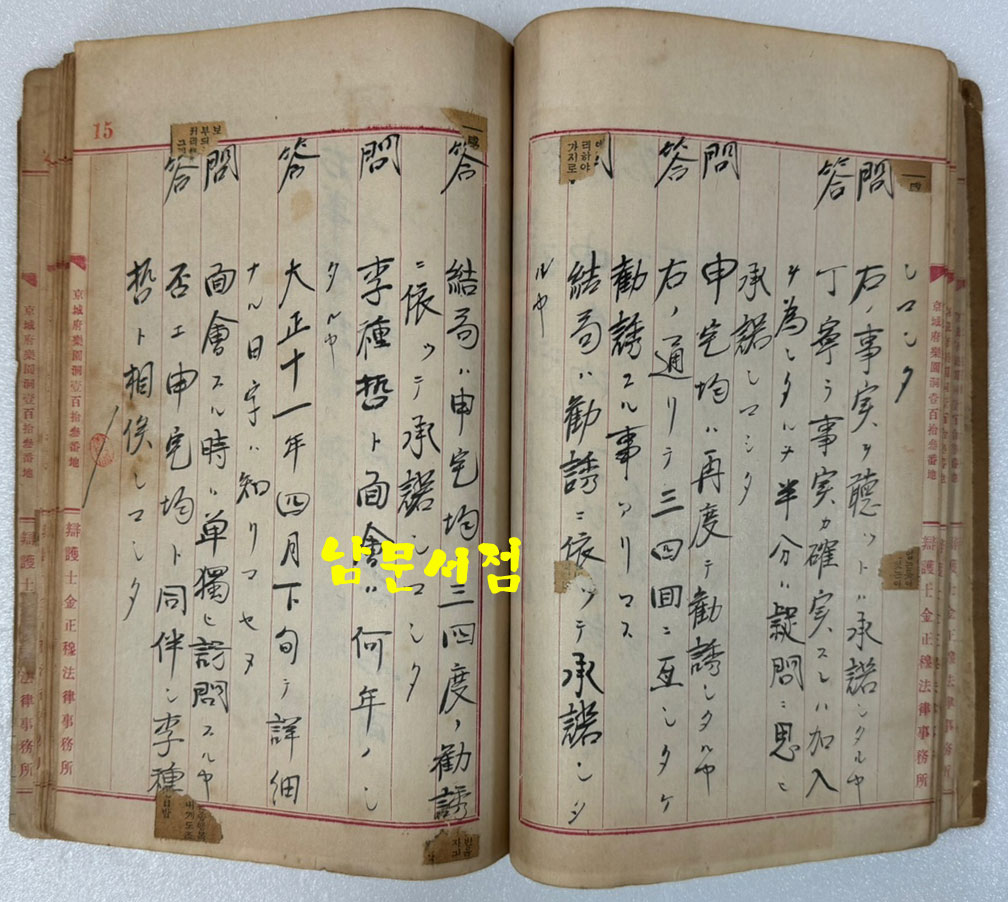 シマシタ
問 右ノ事実ヲ聴クト承諾シタルヤ
答 丁寧ラ事実カ確実スレハ加入
ヲ為シタルヲ半分ハ疑問ニ思ヒ
承諾シマシタ
問 申完均ハ再度テ勧誘シタルヤ
答 右ノ通リテ三四回ニ亘シタケ
勧誘スル事アリマス
問 結局ハ勧誘ニ依ツテ承諾シ
ルヤ
答 結局ハ申完均三四度ノ勧誘
ニ依ツテ承諾シマシタ
問 李種哲ト面會ハ何年ノ
タルヤ
答 大正十一年四月下旬テ詳細
ナル日字ハ知リマセヌ
問 面會スル時ハ単獨ヒ訪問スルヤ
答 否エ申完均ト同伴シ李種
哲ト相俟シマシタ
15
京城府樂園洞壹百拾叁番地
辯護士金正穆法律事務所
京城府樂園洞壹百拾叁番地
辯護士金正穆法律事務所
리하야
가지로
남문서점